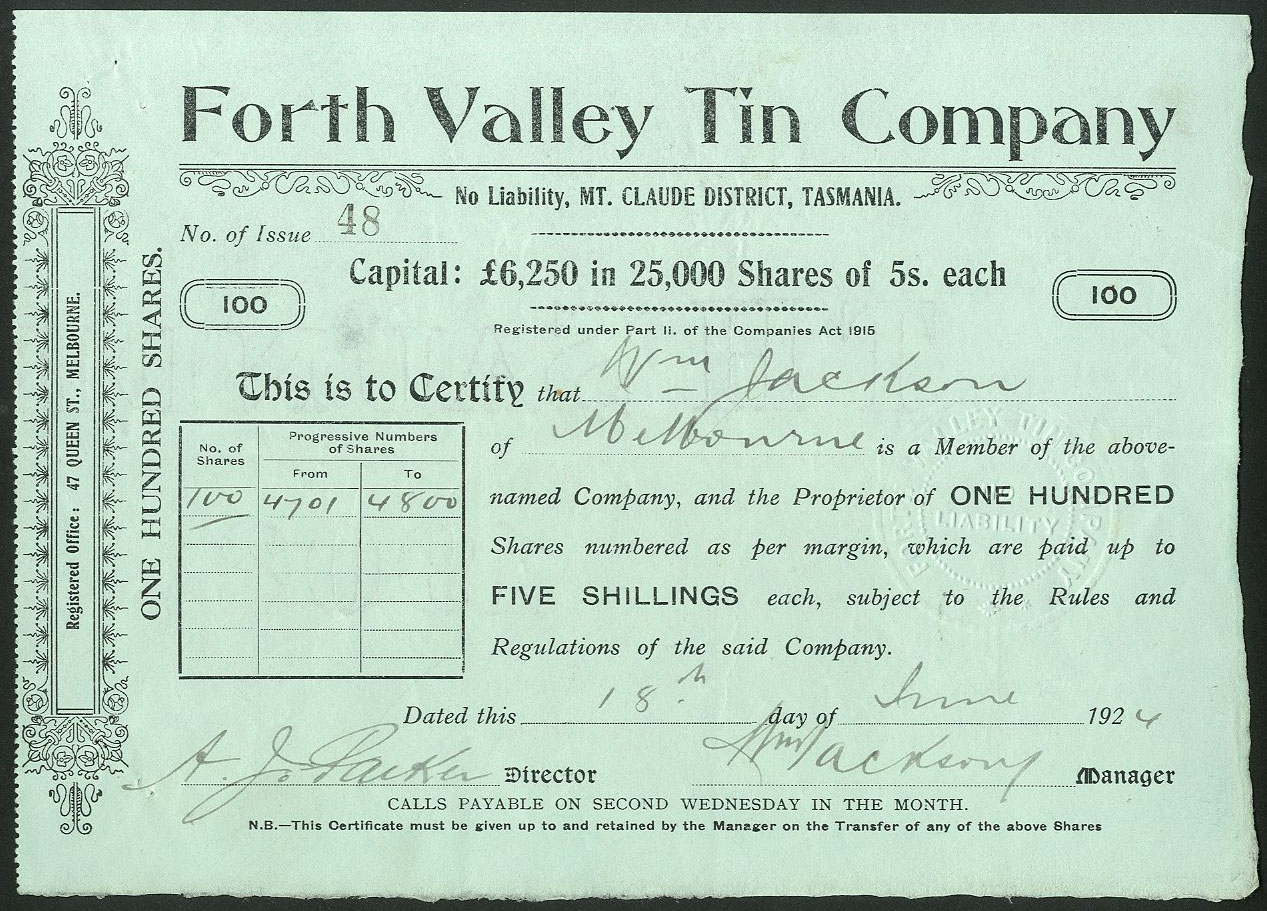 Forth Valley Tin Company
No Liability, MT. CLAUDE DISTRICT, TASMANIA.
No. of Issue 48
Capital: £6,250 in 25,000 Shares of 5s. each
100
100
Registered under Part II. of the Companies Act 1915
This is to Certify that Wm Jackson
of Melbourne is a Member of the above-
named Company, and the Proprietor of ONE HUNDRED
Shares numbered as per margin, which are paid up to
FIVE SHILLINGS each, subject to the Rules and
Regulations of the said Company.
No. of Shares
Progressive Numbers of Shares
From To
100 4701 4800
Dated this 18th day of June 1924
A. J. Parker Director Wm Jackson Manager
CALLS PAYABLE ON SECOND WEDNESDAY IN THE MONTH.
N.B.—This Certificate must be given up to and retained by the Manager on the Transfer of any of the above Shares
ONE HUNDRED SHARES.
Registered Office: 47 QUEEN ST., MELBOURNE.
LIABILITY